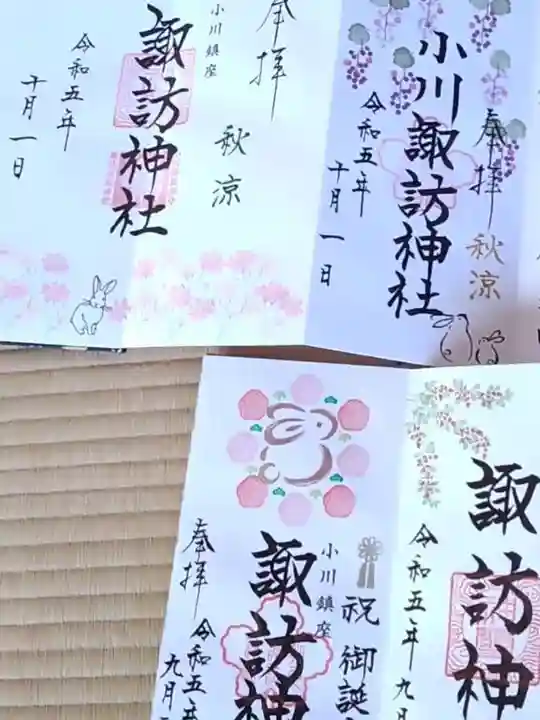 奉拝
小川鎮座
秋涼
諏訪神社
令和五年
十月一日
奉拝
秋涼
小川諏訪神社
令和五年
十月一日
祝 御誕
小川鎮座
諏訪神
奉拝
令和五年
九月
諏訪神
令和五年九